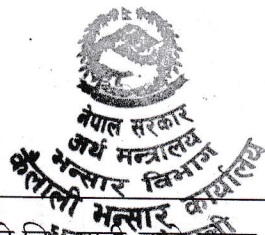 नेपाल सरकार
अर्थ मन्त्रालय
भन्सार विभाग
कैलाली भन्सार कार्यालय